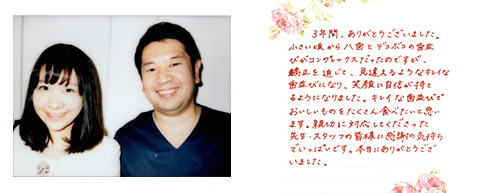 3年間、ありがとうございました。
小さい頃から八歯とデコボコの歯並
びがコンプレックスだったのですが、
矯正を通じて、見違えるようなキレイな
歯並びになり、笑顔に自信が持て
るようになりました。キレイな歯並びで
おいしいものをたくさん食べたいと思い
ます。親切に対応してくださった
先生・スタッフの皆様に感謝の気持ち
でいっぱいです。本当にありがとうござ
いました。